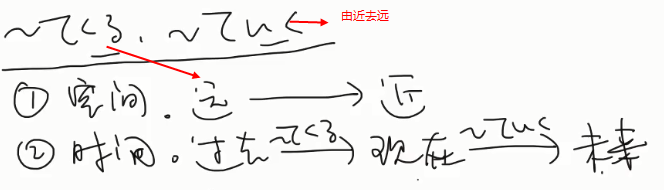 ~てくる．~ていく 由近去远
① 空间．远 → 近
② 时间．过去 ~てくる→ 现在 ~ていく→ 未来